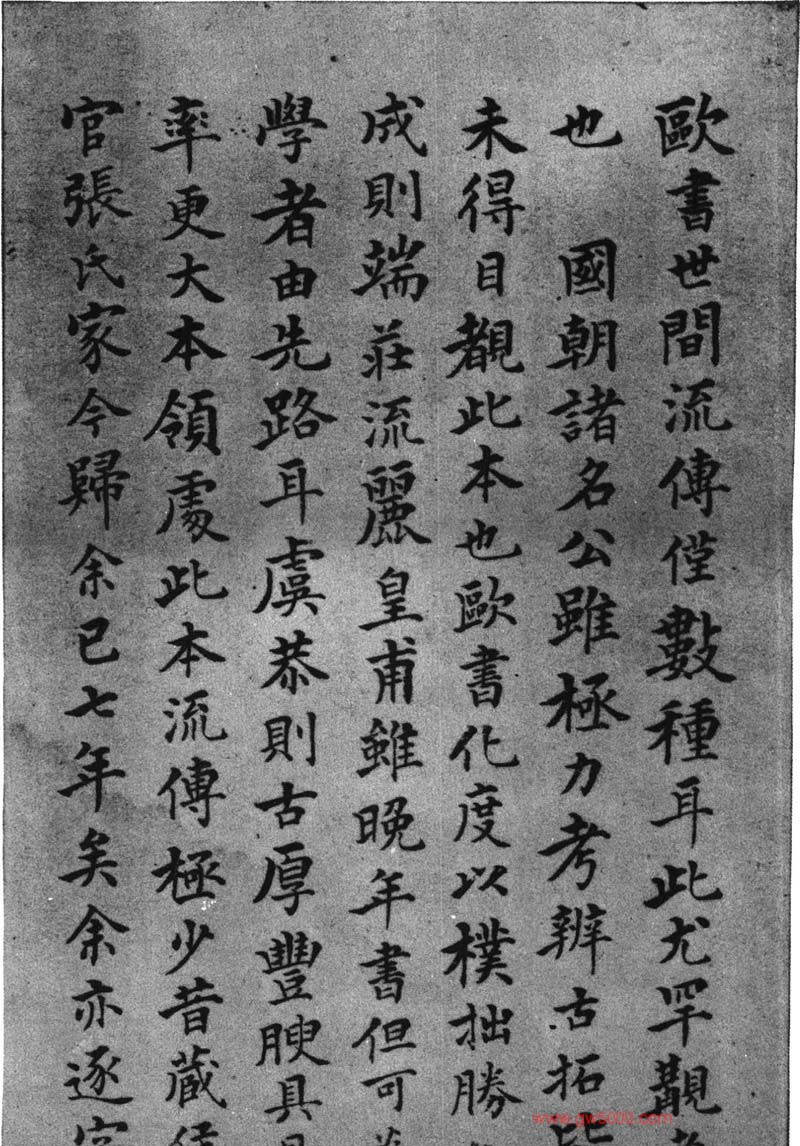 歐書世間流傳僅數種耳此尤罕觀
也 國朝諸名公雖極力考辨古拓
未得目覩此本也歐書化度以樸拙勝
成則端莊流麗皇甫雖晚年書但可
學者由先路耳虞恭則古厚豐腴具
率更大本領處此本流傳極少昔藏
官張氏家今歸余已七年矣余亦逐
www.gw5000.com